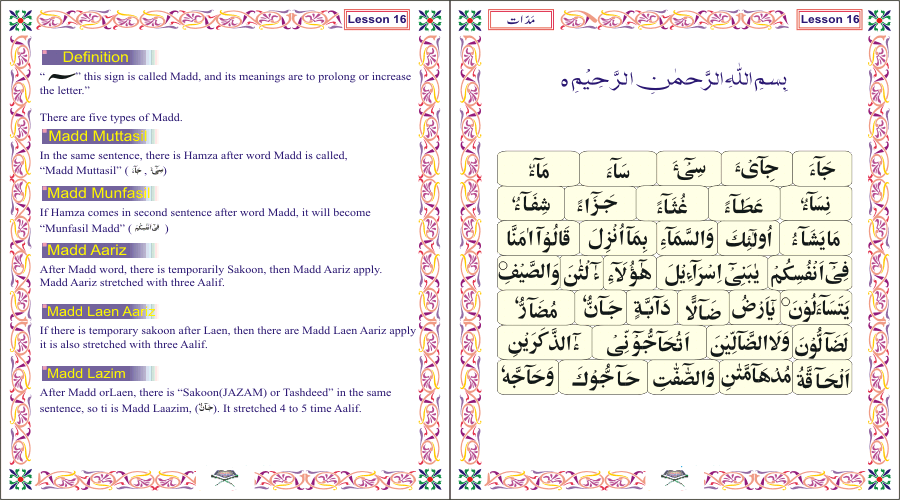 Lesson 16
Definition
“ ~ ” this sign is called Madd, and its meanings are to prolong or increase
the letter.”
There are five types of Madd.
Madd Muttasil
In the same sentence, there is Hamza after word Madd is called,
“Madd Muttasil” ( جَآءَ , سِیْٓءَ )
Madd Munfasil
If Hamza comes in second sentence after word Madd, it will become
“Munfasil Madd” ( فِیْۤ اَنْفُسِكُمْ )
Madd Aariz
After Madd word, there is temporarily Sakoon, then Madd Aariz apply.
Madd Aariz stretched with three Aalif.
Madd Laen Aariz
If there is temporary sakoon after Laen, then there are Madd Laen Aariz apply
it is also stretched with three Aalif.
Madd Lazim
After Madd orLaen, there is “Sakoon(JAZAM) or Tashdeed” in the same
sentence, so ti is Madd Laazim, (جَآنٌّ). It stretched 4 to 5 time Aalif.
مَدّات
Lesson 16
بِسْمِ اللّٰهِ الرَّحْمٰنِ الرَّحِيْمِ ○
جَآءَ جِایْٓءَ سِیْٓءَ سَآءَ مَآءً
نِسَآءً عَطَآءً غُثَآءً جَزَآءً شِفَآءٌ
مَایَشَآءُ اُولٰٓئِكَ وَالسَّمَآءِ بِمَاۤ اُنْزِلَ قَالُوْۤا اٰمَنَّا
فِیْۤ اَنْفُسِكُمْ یٰبَنِیْۤ اِسْرَآءِیْلَ هٰۤؤُلَآءِ ءٰٓالْـٰٔنَ وَالصَّیْفِ○
یَتَسَآءَلُوْنَ○ یٰۤاَرْضُ ضَآلًّا دَآبَّةٍ جَآنٌّ مُضَآرٌّ
لَضَآلُّوْنَ وَلَاالضَّآلِّیْنَ اَتُحَآجُّوْٓنِّیْ ءٰٓالذَّكَرَیْنِ
اَلْحَآقَّةُ مُدْهَآمَّتٰنِ وَالصّٰٓفّٰتِ حَآجُّوْكَ وَحَآجَّهٗ